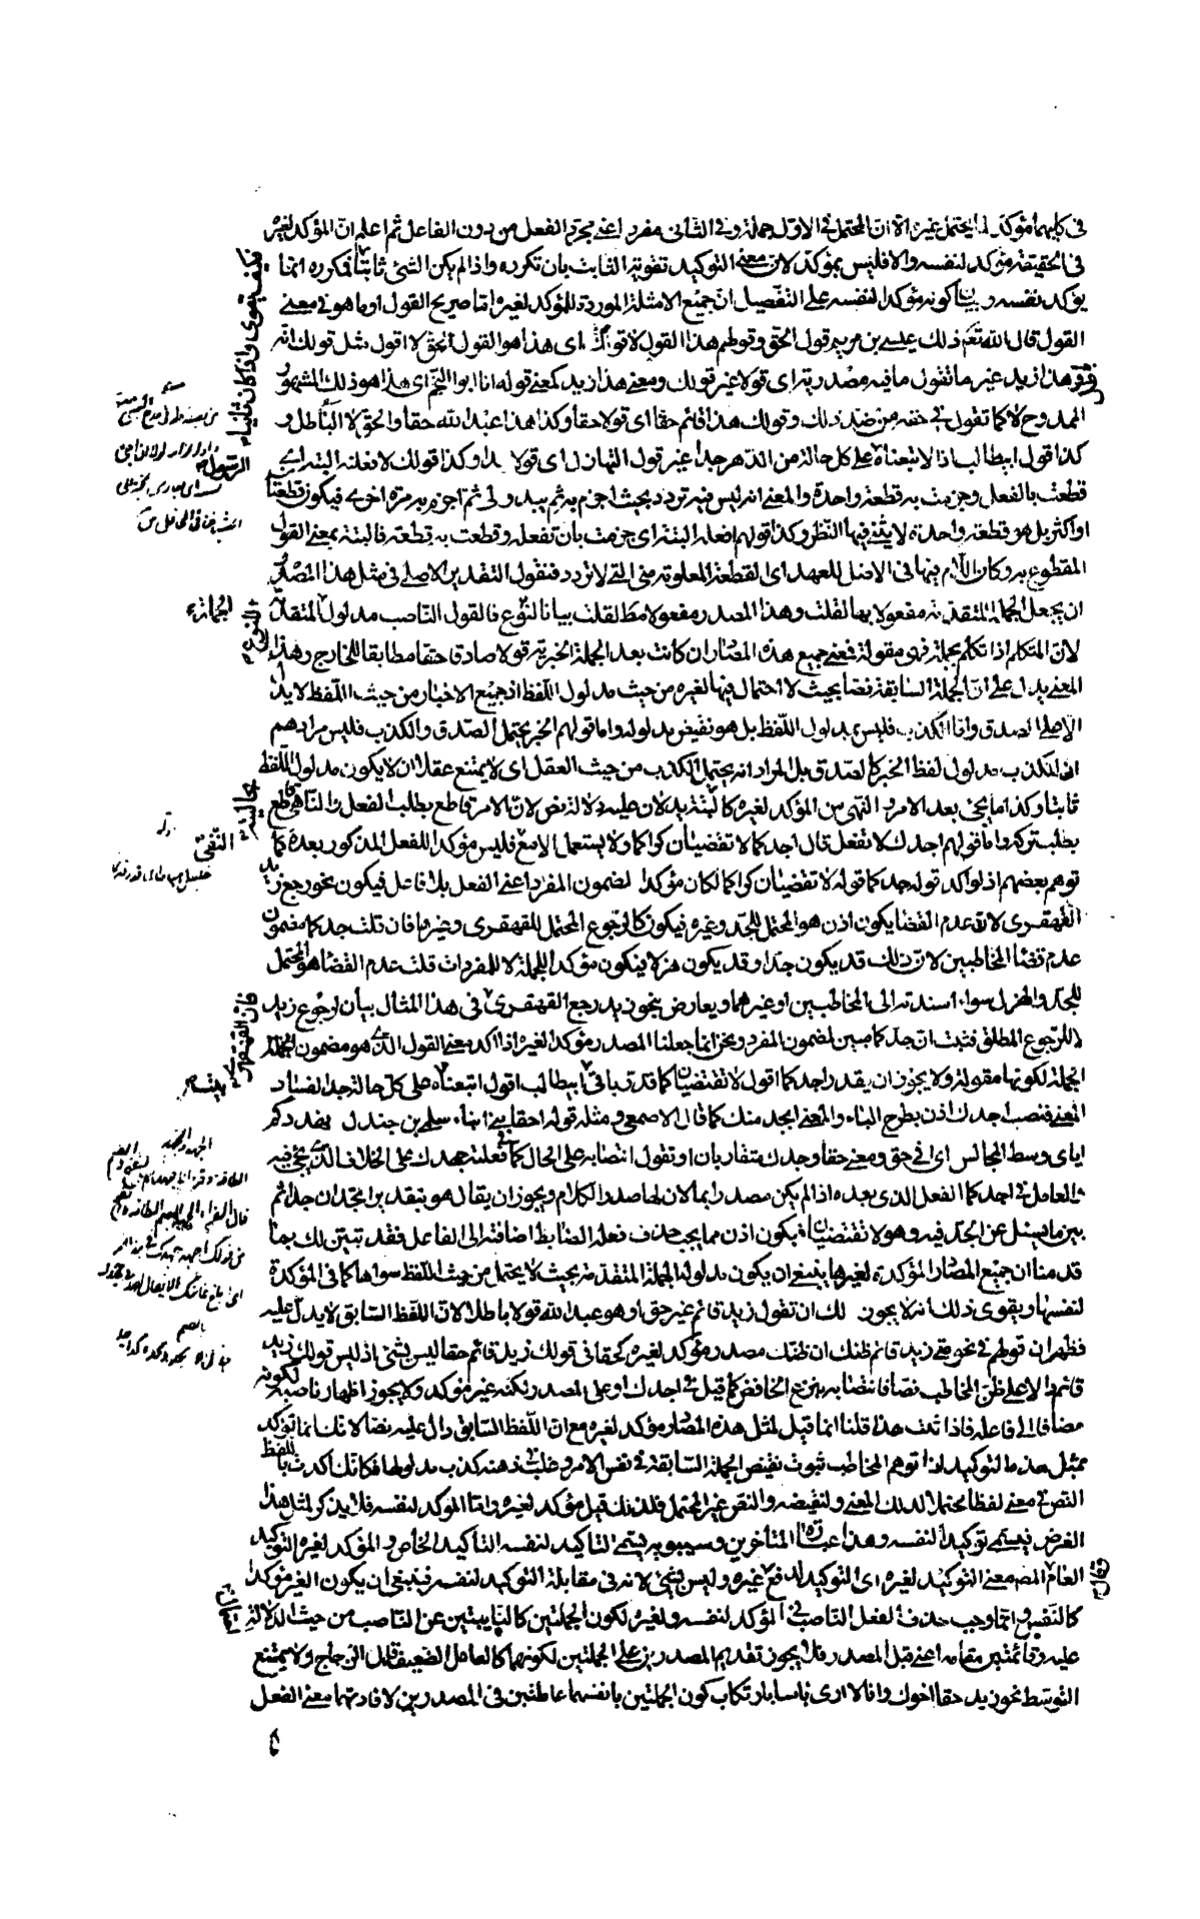 في كليهما مؤكد لما يحتمل غيره الا ان المحتمل في الاول جملة وفي الثاني مفرد اعني مجرد الفعل من دون الفاعل ثم اعلم ان المؤكد لغيره
في الحقيقة مؤكد لنفسه والا فليس بمؤكد لان معنى التوكيد تقوية الثابت بان تكرره واذا لم يكن الشئ ثابتا فمكرره انما
يؤكد نفسه وبيان كونه مؤكدا لنفسه على التفصيل ان جميع الامثلة الموردة للمؤكد لغيره اما صريح القول او ما هو في معنى
القول قال الله تعالى ذلك عيسى بن مريم قول الحق وقولهم هذا القول لا قولك اى هذا هو القول الحق لا اقول مثل قولك انه
هذا زيد غير ما تقول ما فيه مصدرية اى قولا غير قولك ومعنى هذا زيد كمعنى قوله انا ابو النجم اى هذا هو ذلك المشهور
الممدوح لا كما تقول في حقه من ضد ذلك وقولك هذا قائم حقا اى قولا حقا وكذا هذا عبد الله حقا والحق لا الباطل و
كذا قول ابيطالب اذا لاتبعناه على كل حالة من الدهر جدا غير قول التهازل اى قولا جدا وكذا قولك لا افعله البتة اى
قطعت بالفعل وجزمت به قطعة واحدة والمعنى انه ليس فيه تردد بحيث اجزم به ثم يبدو لى ثم اجزم به مرة اخرى فيكون قطعتا
او اكثر بل هو قطعة واحدة لا يثنى فيها النظر وكذا قولهم افعله البتة اى جزمت بان تفعله وقطعت به قطعة فالبتة بمعنى القول
المقطوع به وكان اللام فيها في الاصل للعهد اى القطعة المعلومة منى التى لا تردد فنقول التقدير الاصلى في مثل هذا المصدر
ان يجعل الجملة المتقدمة مفعولا بها لقلت وهذا المصدر مفعولا مطلقا لقلت بيانا للنوع فالقول الناصب مدلول المتقدمة
لان المتكلم اذا تكلم بجملة فهى مقولة فمعنى جميع هذه المصادر ان كانت بعد الجملة الخبرية قولا صادقا حقا مطابقا للخارج وهذا
المعنى يدل على ان الجملة السابقة نص بحيث لا احتمال فيها لغيره من حيث مدلول اللفظ اذ جميع الاخبار من حيث اللفظ لا يدل
الا على الصدق واما الكذب فليس بمدلول اللفظ بل هو نقيض مدلوله واما قولهم الخبر يحتمل الصدق والكذب فليس مرادهم
ان الكذب مدلول لفظ الخبر كالصدق بل المراد انه يحتمل الكذب من حيث العقل اى لا يمتنع عقلا ان لا يكون مدلول اللفظ
ثابتا وكذا ما يجئ بعد الامر والنهى من المؤكد لغيره كالبتة يدلان عليه دلالة نص لان الامر قاطع بطلب الفعل والناهى قاطع
بطلب تركه واما قولهم اجدك لا تفعل قال اجدكما لا تقضيان كراكما ولا يستعمل الا مع فليس مؤكدا للفعل المذكور بعده كما
توهم بعضهم اذ لو اكد قوله جدكما قوله لا تقضيان كراكما لكان مؤكدا لمضمون المفرد اعنى الفعل بلا فاعل فيكون نحو رجع زيد
القهقرى لان عدم القضا يكون اذن هو المحتمل للجد وغيره فيكون كالرجوع المحتمل للقهقرى وغيرها فان قلت جدكما مضمون
عدم قضا المخاطبين لان ذلك قد يكون جدا وقد يكون هزلا فيكون مؤكدا للجملة لا للمفردات قلت عدم القضا هو المحتمل
للجد والهزل سواء اسندته الى المخاطبين او غيرهما ويعارض بنحو زيد رجع القهقرى في هذا المثال بيان لرجوع زيد
لا للرجوع المطلق فثبت ان جدكما مبين لمضمون المفرد ونحن انما جعلنا المصدر مؤكدا لغيره اذا اكد معنى القول الذى هو مضمون الجملة
الجملة لكونها مقولة ولا يجوز ان يقدر اجدكما اقول لا تقضيان كما قدر في ابيطالب اقول اتبعناه على كل حالة جدا لفساد
المعنى فنصب اجدك اذن بطرح الباء والمعنى ابجد منك كما قال الاصمعى ومثله قوله احقا بنى ابناء سلمى بن جندل تهددكم
اياى وسط المجالس اى في حق ومعنى حقا وجدك متقاربان او تقول انتصابه على الحال كما في فعلته جهدك على الخلاف الذى يجئ فيه
والعامل في اجدكما الفعل الذى بعده اذا لم يكن مصدرا بهما لان لهما صدر الكلام ويجوز ان يقال هو بتقدير اتجدان جدا ثم
بين ما يسئل عن الجد فيه وهو لا تقضيان فيكون اذن مما يجب حذف فعله لضابط اضافته الى الفاعل فقد تبين لك بما
قدمنا ان جميع المصادر المؤكدة لغيرها ينبغى ان يكون مدلول الجملة المتقدمة بحيث لا يحتمل من حيث اللفظ سواها كما في المؤكدة
لنفسها ويقوى ذلك انه لا يجوز لك ان تقول زيد قائم غير حق او هو عبد الله قولا باطلا لان اللفظ السابق لا يدل عليه
فظهر ان قولهم في نحو قمى زيد قائم ظنك ان ظنك مصدر مؤكد لغيره كحقا في قولك زيد قائم حقا ليس بشئ اذ ليس قولك زيد
قائم دالا على ظن المخاطب نصا فانتصابه بنزع الخافض كما قيل في اجدك او على المصدر لكنه غير مؤكد ولا يجوز اظهار ناصبه لكونه
مضافا الى فاعله فاذا ثبت هذا قلنا انما قيل لمثل هذه المصادر مؤكد لغيره مع ان اللفظ السابق دال عليه نصا لانك انما تؤكد
بمثل هذا التوكيد اذا توهم المخاطب ثبوت نقيض الجملة السابقة في نفس الامر وغلب في ذهنه كذب مدلولها فكانك اكدت باللفظ
النص في معنى لفظا محتملا لذلك المعنى ولنقيضه والنص غير المحتمل فلذلك قيل مؤكد لغيره واما المؤكد لنفسه فلا يذكر لمثل هذا
الغرض فيسمى توكيدا لنفسه وهذا عبارة المتأخرين وسيبويه يسمى التاكيد لنفسه التأكيد الخاص والمؤكد لغيره التوكيد
العام المصـ معنى التوكيد لغيره اى التوكيد لدفع غيره وليس بشئ لانه في مقابلة التوكيد لنفسه فينبغى ان يكون الغير مؤكدا
كالنفس وانما وجب حذف الفعل الناصب في المؤكد لنفسه ولغيره لكون الجملتين كالنايبتين عن الناصب من حيث الدلالة
عليه وقائمتين مقامه اعنى قبل المصدر فلا يجوز تقديم المصدرين على الجملتين لكونهما كالعامل الضعيف قال الزجاج ولا يمتنع
التوسط نحو زيد حقا اخوك وانا لا ارى باسا بارتكاب كون الجملتين بانفسهما عاملتين في المصدرين لافادتهما معنى الفعل